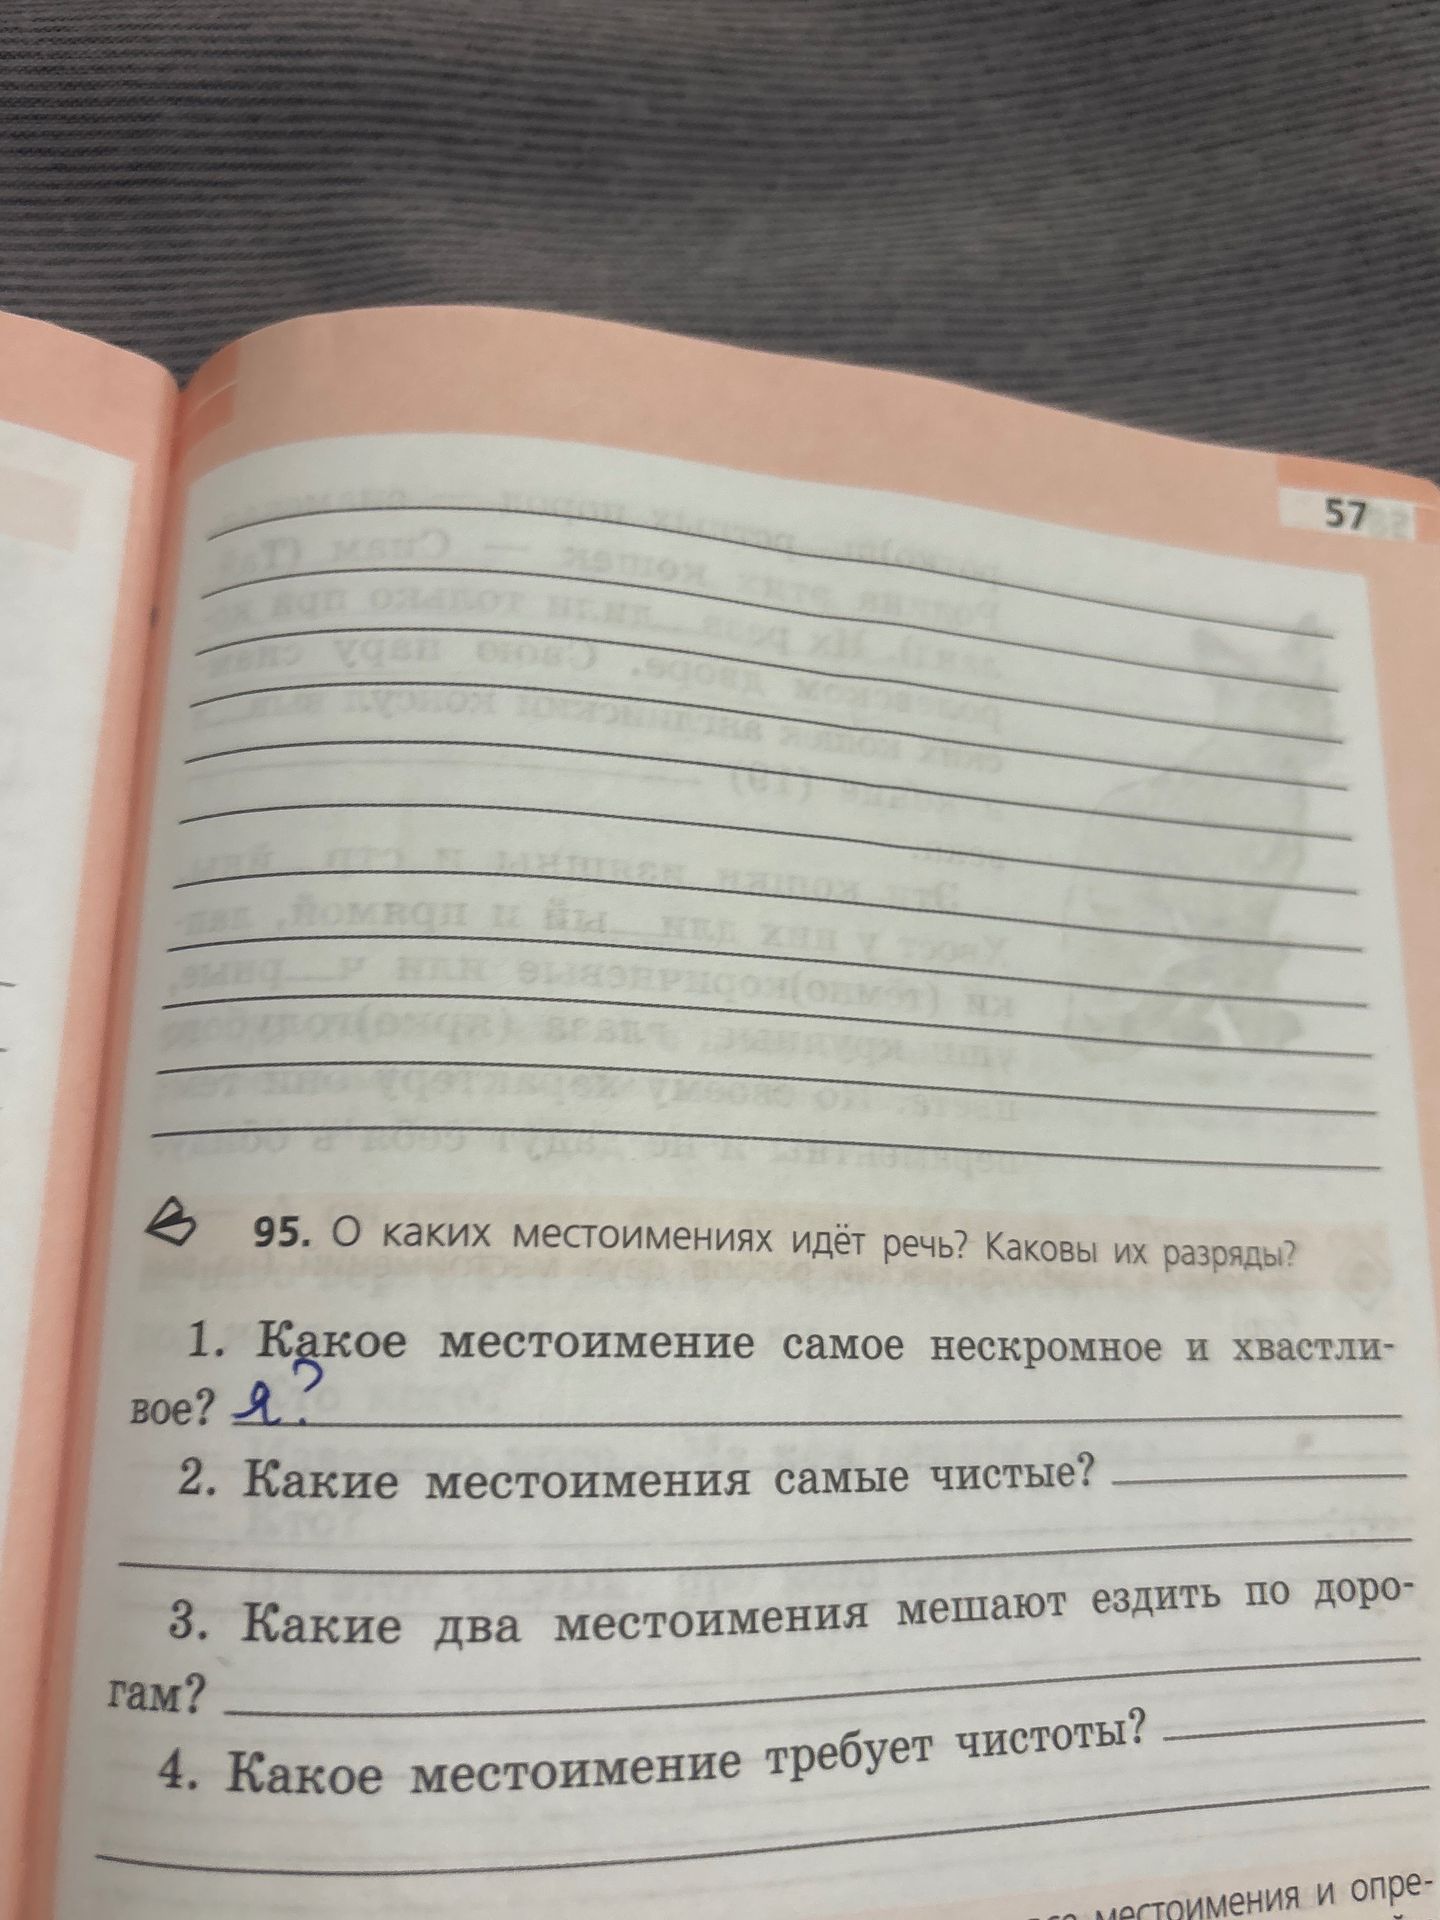 57
95. О каких местоимениях идёт речь? Каковы их разряды?
1. Какое местоимение самое нескромное и хвастли-
вое? я?
2. Какие местоимения самые чистые?
3. Какие два местоимения мешают ездить по доро-
гам?
4. Какое местоимение требует чистоты?
местоимения и опре-